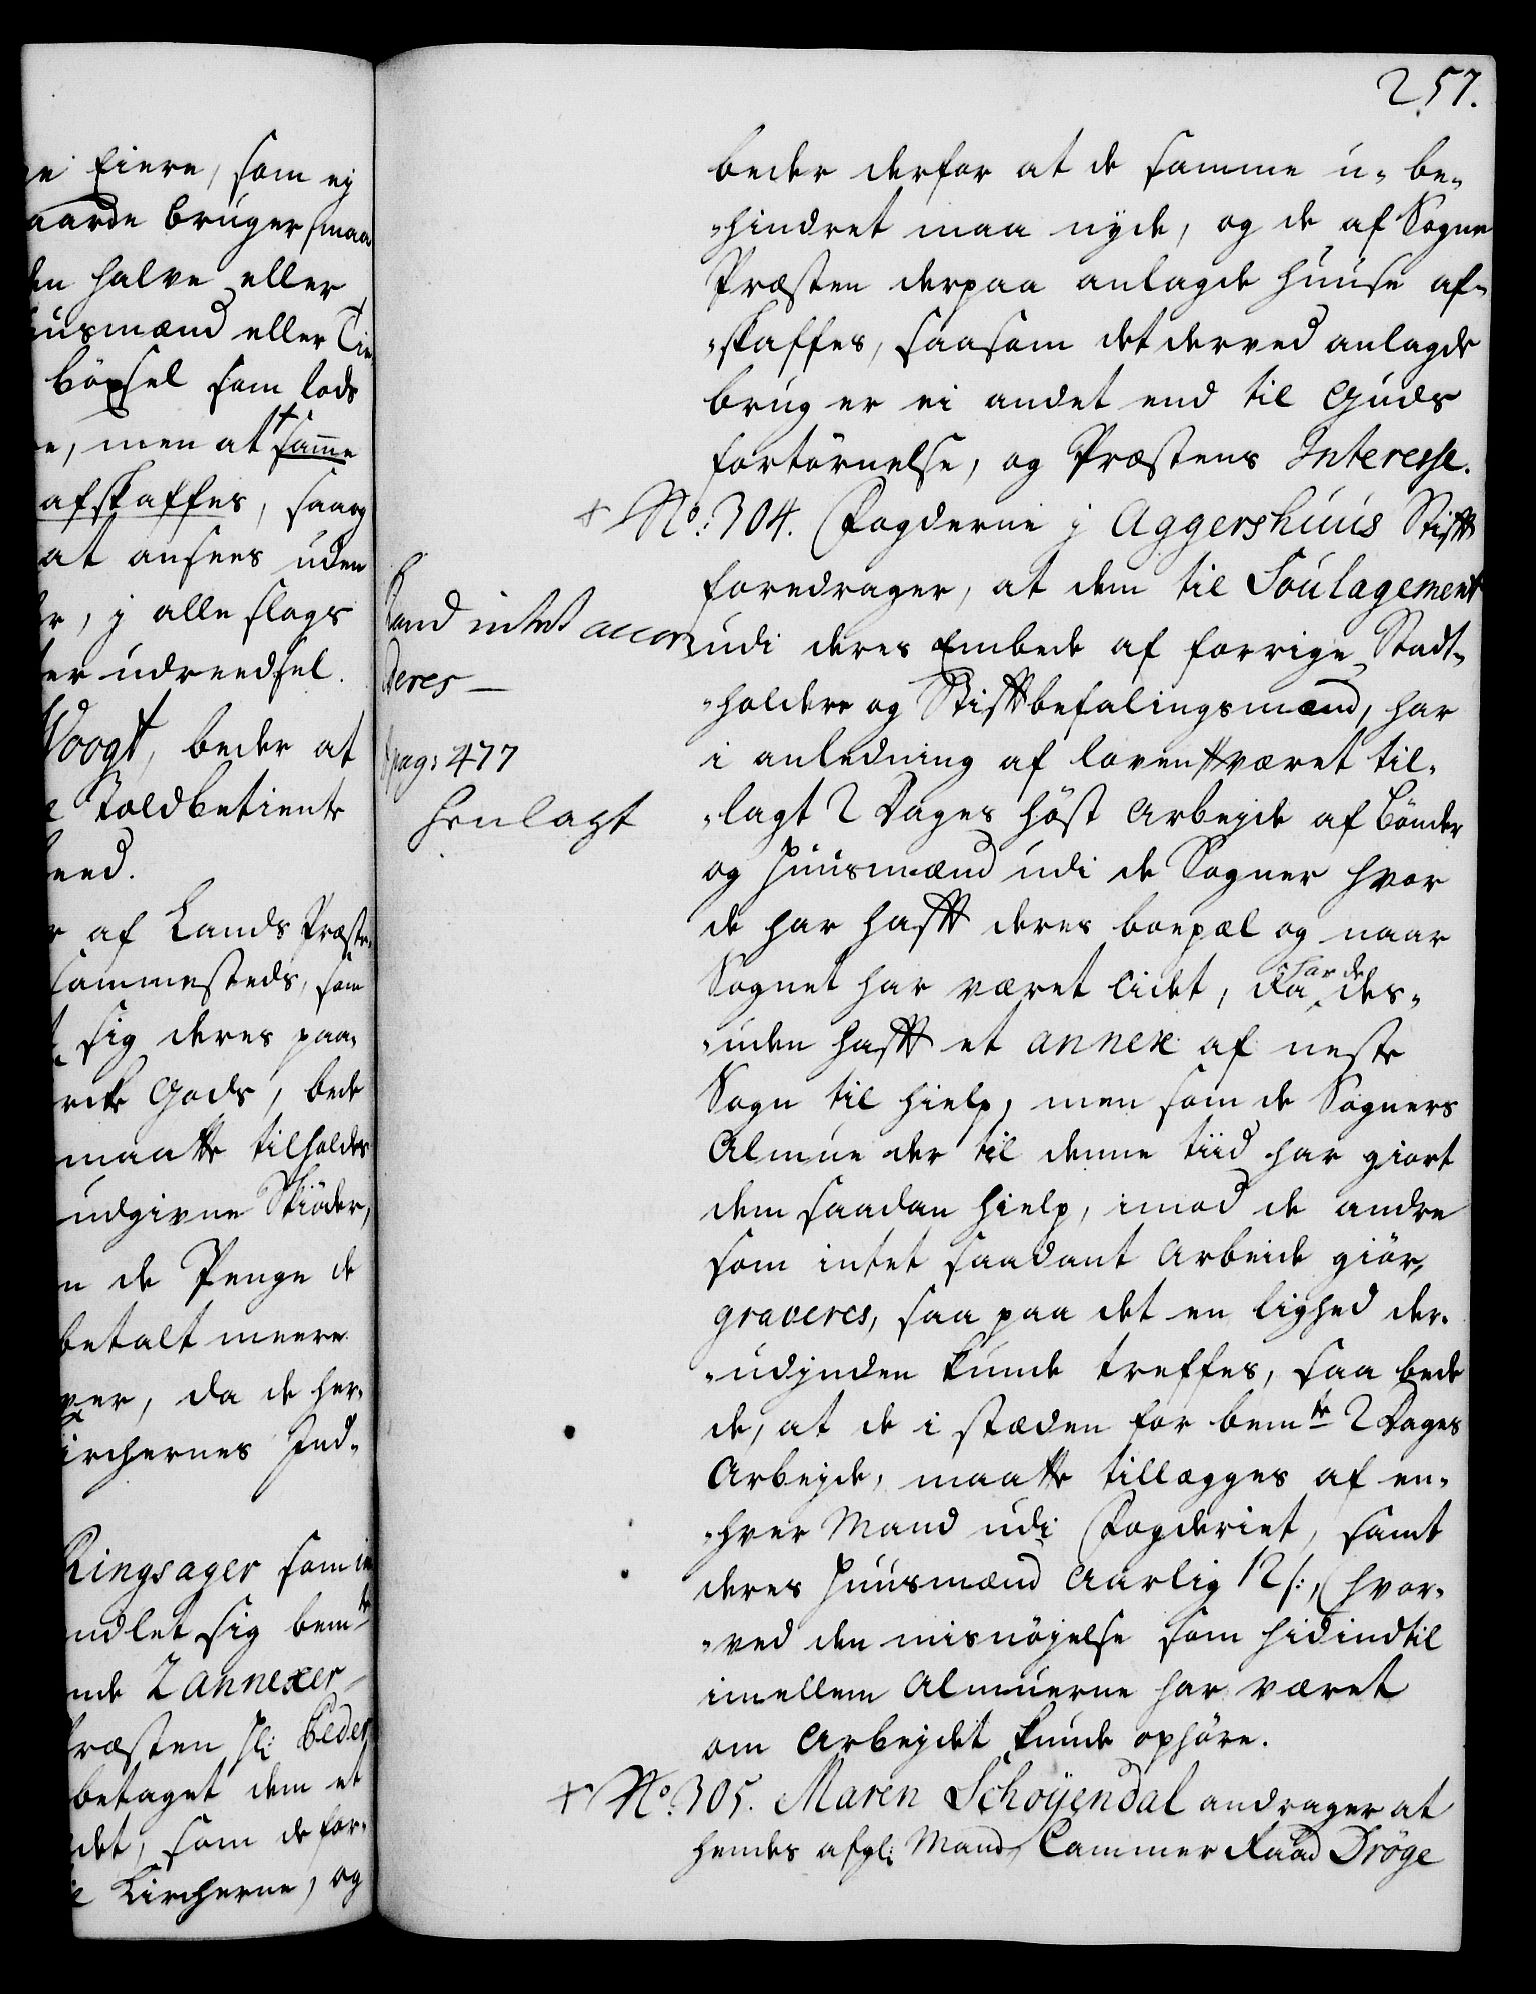 e Eiere, som ej
aarde bruger maa
den halve eller
uusmænd eller Tie,,
böxsel som lods
e, men at samme
afskaffes, saavg
at ansees uden
r, j alle slags
er udreedsel.
Voogt, beder at
e Toldbetiente
eed.
r af Lands Præste,,
sammesteds, som
sig deres paa,,
rcke Gods, bede
maatte tilholdes
udgivne Skiöder,
n de Penge de
betalt meere
ver, da de her,,
irchernes Ind,,
Ringsager som i
ndlet sig bemte
nde 2 annexer
Præsten Hr: beder
betaget dem et
det, som de for,,
e Kircherne, og
257.
beder derfor at de samme u,, be,,
,,hindret maa nyde, og de af Sogne
Præsten derpaa anlagde Huuse af,,
,,skaffes, saasom det derved anlagde
brug er ei andet end til Guds
fortörnelse, og Præstens Interesse.
+ No: 304. Fogderne j Aggershuus Stift
foredrager, at dem til Soulagement
udi deres Embede af forrige Stadt,,
,,holdere og Stiftbefalingsmænd, har
i anledning af loven været til,,
,,lagt 2 Dages Höst Arbejde af Bönder
og Huusmænd udi de Sogner hvor
de har hafft deres boepæl og naar
Sognet har været lidet, da har de des,,
,,uden hafft et annex af neste
Sogn til hielp, men som de Sogners
Almue der til denne tiid har giort
dem saadan hielp, imod de andre
som intet saadant Arbeide giör,
graveres, saa paa det en lighed der,,
,,udjnden kunde treffes, saa bede
de, at de i stæden for bemte 2 Dages
Arbejde, maatte tillægges af en,,
,,hver Mand udi Fogderiet, samt
deres Huusmænd Aarlig 12 s:, hvor,,
,,ved den misnöjelse som hidindtil
imellem Almuerne har været
om Arbejdet kunde ophöre.
+ No: 305. Maren Schöyendal andrager at
hendes afgl: Mand Cammer Raad Dröge
kand intet accor
deres —
pag: 477
Henlagt